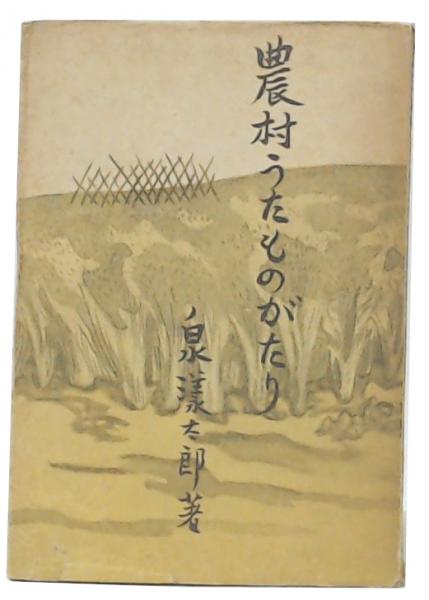 農村うたものがたり
泉漾太郎著